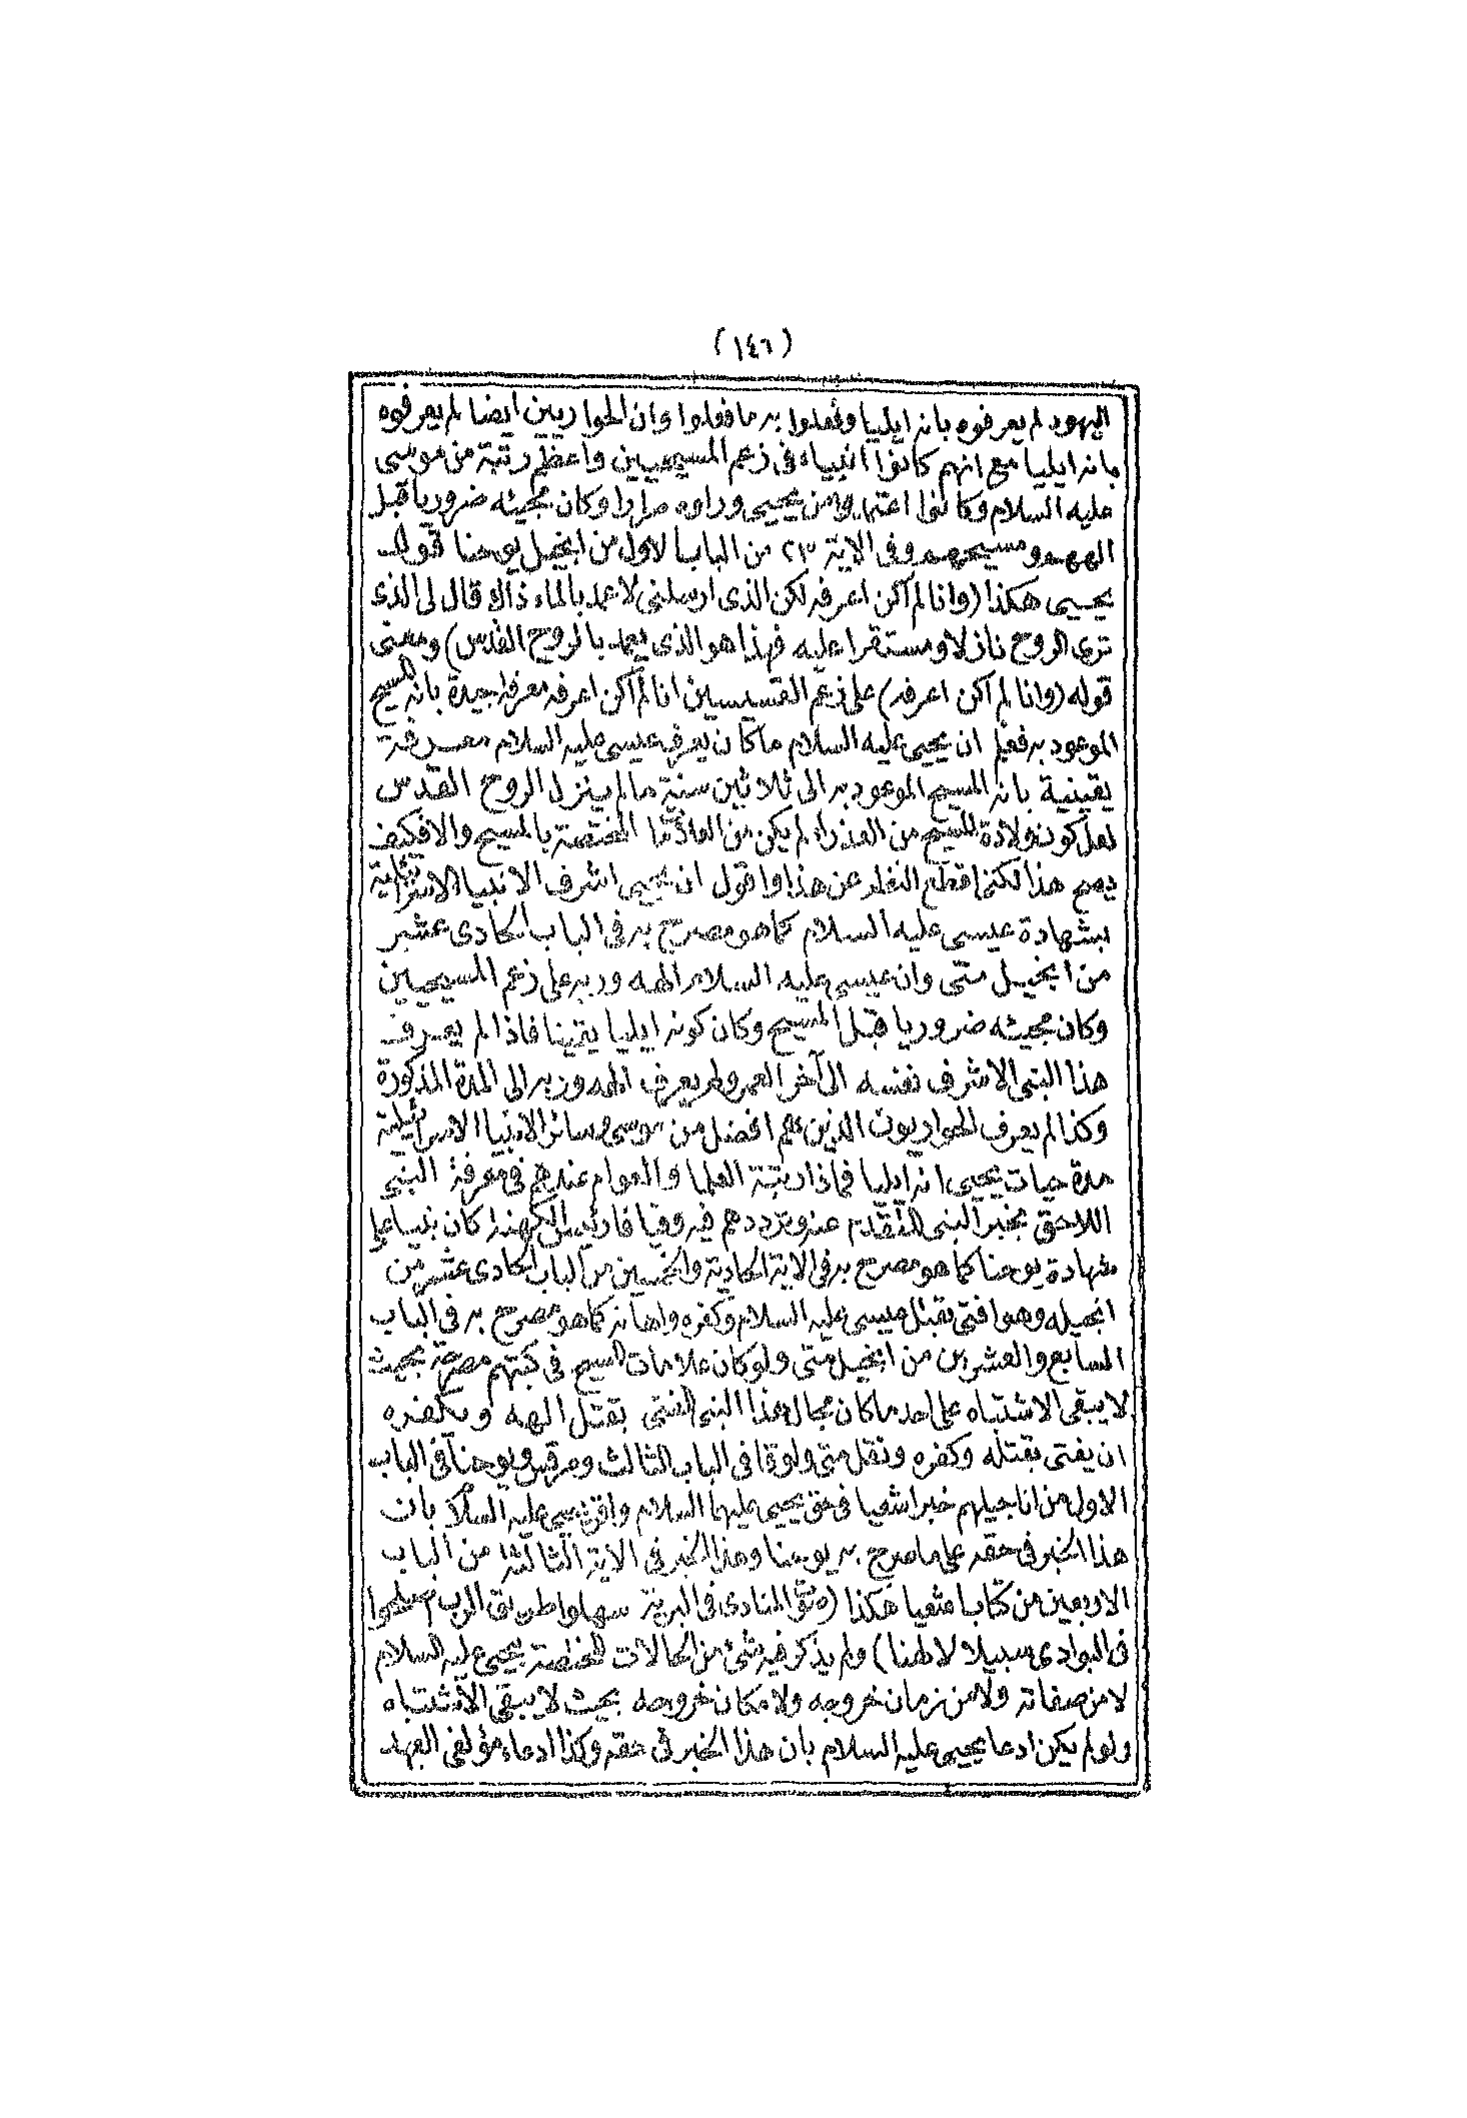 (١٤٦)
اليهود لم يعرفوه بانه ايليا وفعلوا به ما فعلوا وان الحواريين ايضا لم يعرفوه
بانه ايليا مع انهم كانوا انبياء فى زعم المسيحيين واعظم رتبة من موسى
عليه السلام وكانوا اعتمدوا من يحيى وراوه مرارا وكان مجيئه ضروريا قبل
الههم ومسيحهم وفى الاية ٣٣ من الباب الاول من انجيل يوحنا قول
يحيى هكذا (وانا لم اكن اعرفه لكن الذى ارسلنى لاعمد بالماء ذاك قال لى الذى
ترى الروح نازلا ومستقرا عليه فهذا هو الذى يعمد بالروح القدس) ومعنى
قوله (وانا لم اكن اعرفه) على زعم القسيسين انا لم اكن اعرفه معرفة جيدة بانه المسيح
الموعود به فعلم ان يحيى عليه السلام ما كان يعرف عيسى عليه السلام معرفة
يقينية بانه المسيح الموعود به الى ثلاثين سنة ما لم ينزل الروح القدس
لعل كون ولادة المسيح من العذراء لم يكن من العلامات المختصة بالمسيح والا فكيف
يصح هذا لكنى اقطع النظر عن هذا واقول ان يحيى اشرف الانبيا الاسرائيلية
بشهادة عيسى عليه السلام كما هو مصرح به فى الباب الحادى عشر
من انجيل متى وان عيسى عليه السلام الهه وربه على زعم المسيحيين
وكان مجيئه ضروريا قبل المسيح وكان كونه ايليا يقينا فاذا لم يعرف
هذا النبى الاشرف نفسه الى آخر العمر ولم يعرف الهه وربه الى المدة المذكورة
وكذا لم يعرف الحواريون الذين هم افضل من موسى وسائر الانبيا الاسرائيلية
مدة حيات يحيى انه ايليا فماذا رتبة العلما والعوام عندهم فى معرفة النبى
اللاحق بخبر النبى المتقدم عنه وترددهم فيه وقيافا رئيس الكهنة كان نبيا على
شهادة يوحنا كما هو مصرح به فى الاية الحادية والخمسين من الباب الحادى عشر من
انجيله وهو افتى بقتل عيسى عليه السلام وكفره واهانه كما هو مصرح به فى الباب
السابع والعشرين من انجيل متى ولو كان علامات المسيح فى كتبهم مصرحة بحيث
لا يبقى الاشتباه على احد ما كان مجال هذا النبى المفتى بقتل الهه وبكفره
ان يفتى بقتله وكفره ونقل متى ولوقا فى الباب الثالث ومرقس ويوحنا فى الباب
الاول من اناجيلهم خبر اشعيا فى حق يحيى عليهما السلام واقر يحيى عليه السلام بان
هذا الخبر فى حقه على ما صرح به يوحنا وهذا الخبر فى الاية الثالثة من الباب
الاربعين من كتاب اشعيا هكذا (صوت المنادى فى البرية سهلوا طريق الرب اصلحوا
فى البوادى سبيلا لالهنا) ولم يذكر فيه شئ من الحالات المختصة بيحيى عليه السلام
لا من صفاته ولا من زمان خروجه ولا مكان خروجه بحيث لا يبقى الاشتباه
ولو لم يكن ادعا يحيى عليه السلام بان هذا الخبر فى حقه وكذا ادعاء مؤلفى العهد